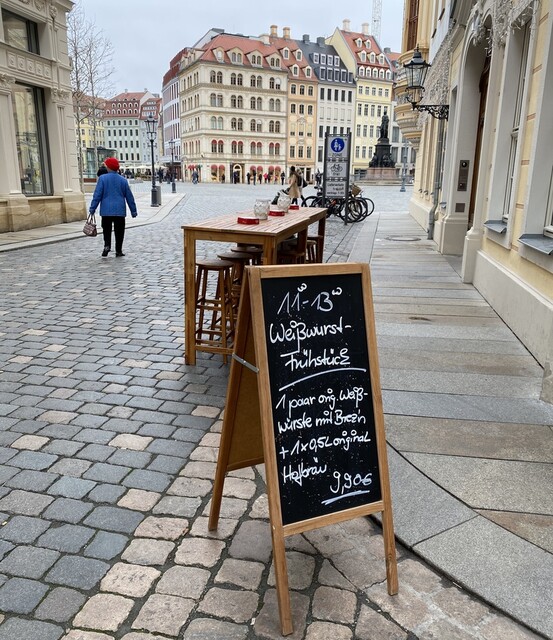 11⁰⁰-13⁰⁰
Weißwurst-
Frühstück
1 paar orig. Weiß-
würste mit Brez'n
+ 1 x 0,5L original
Hofbräu
9,90€